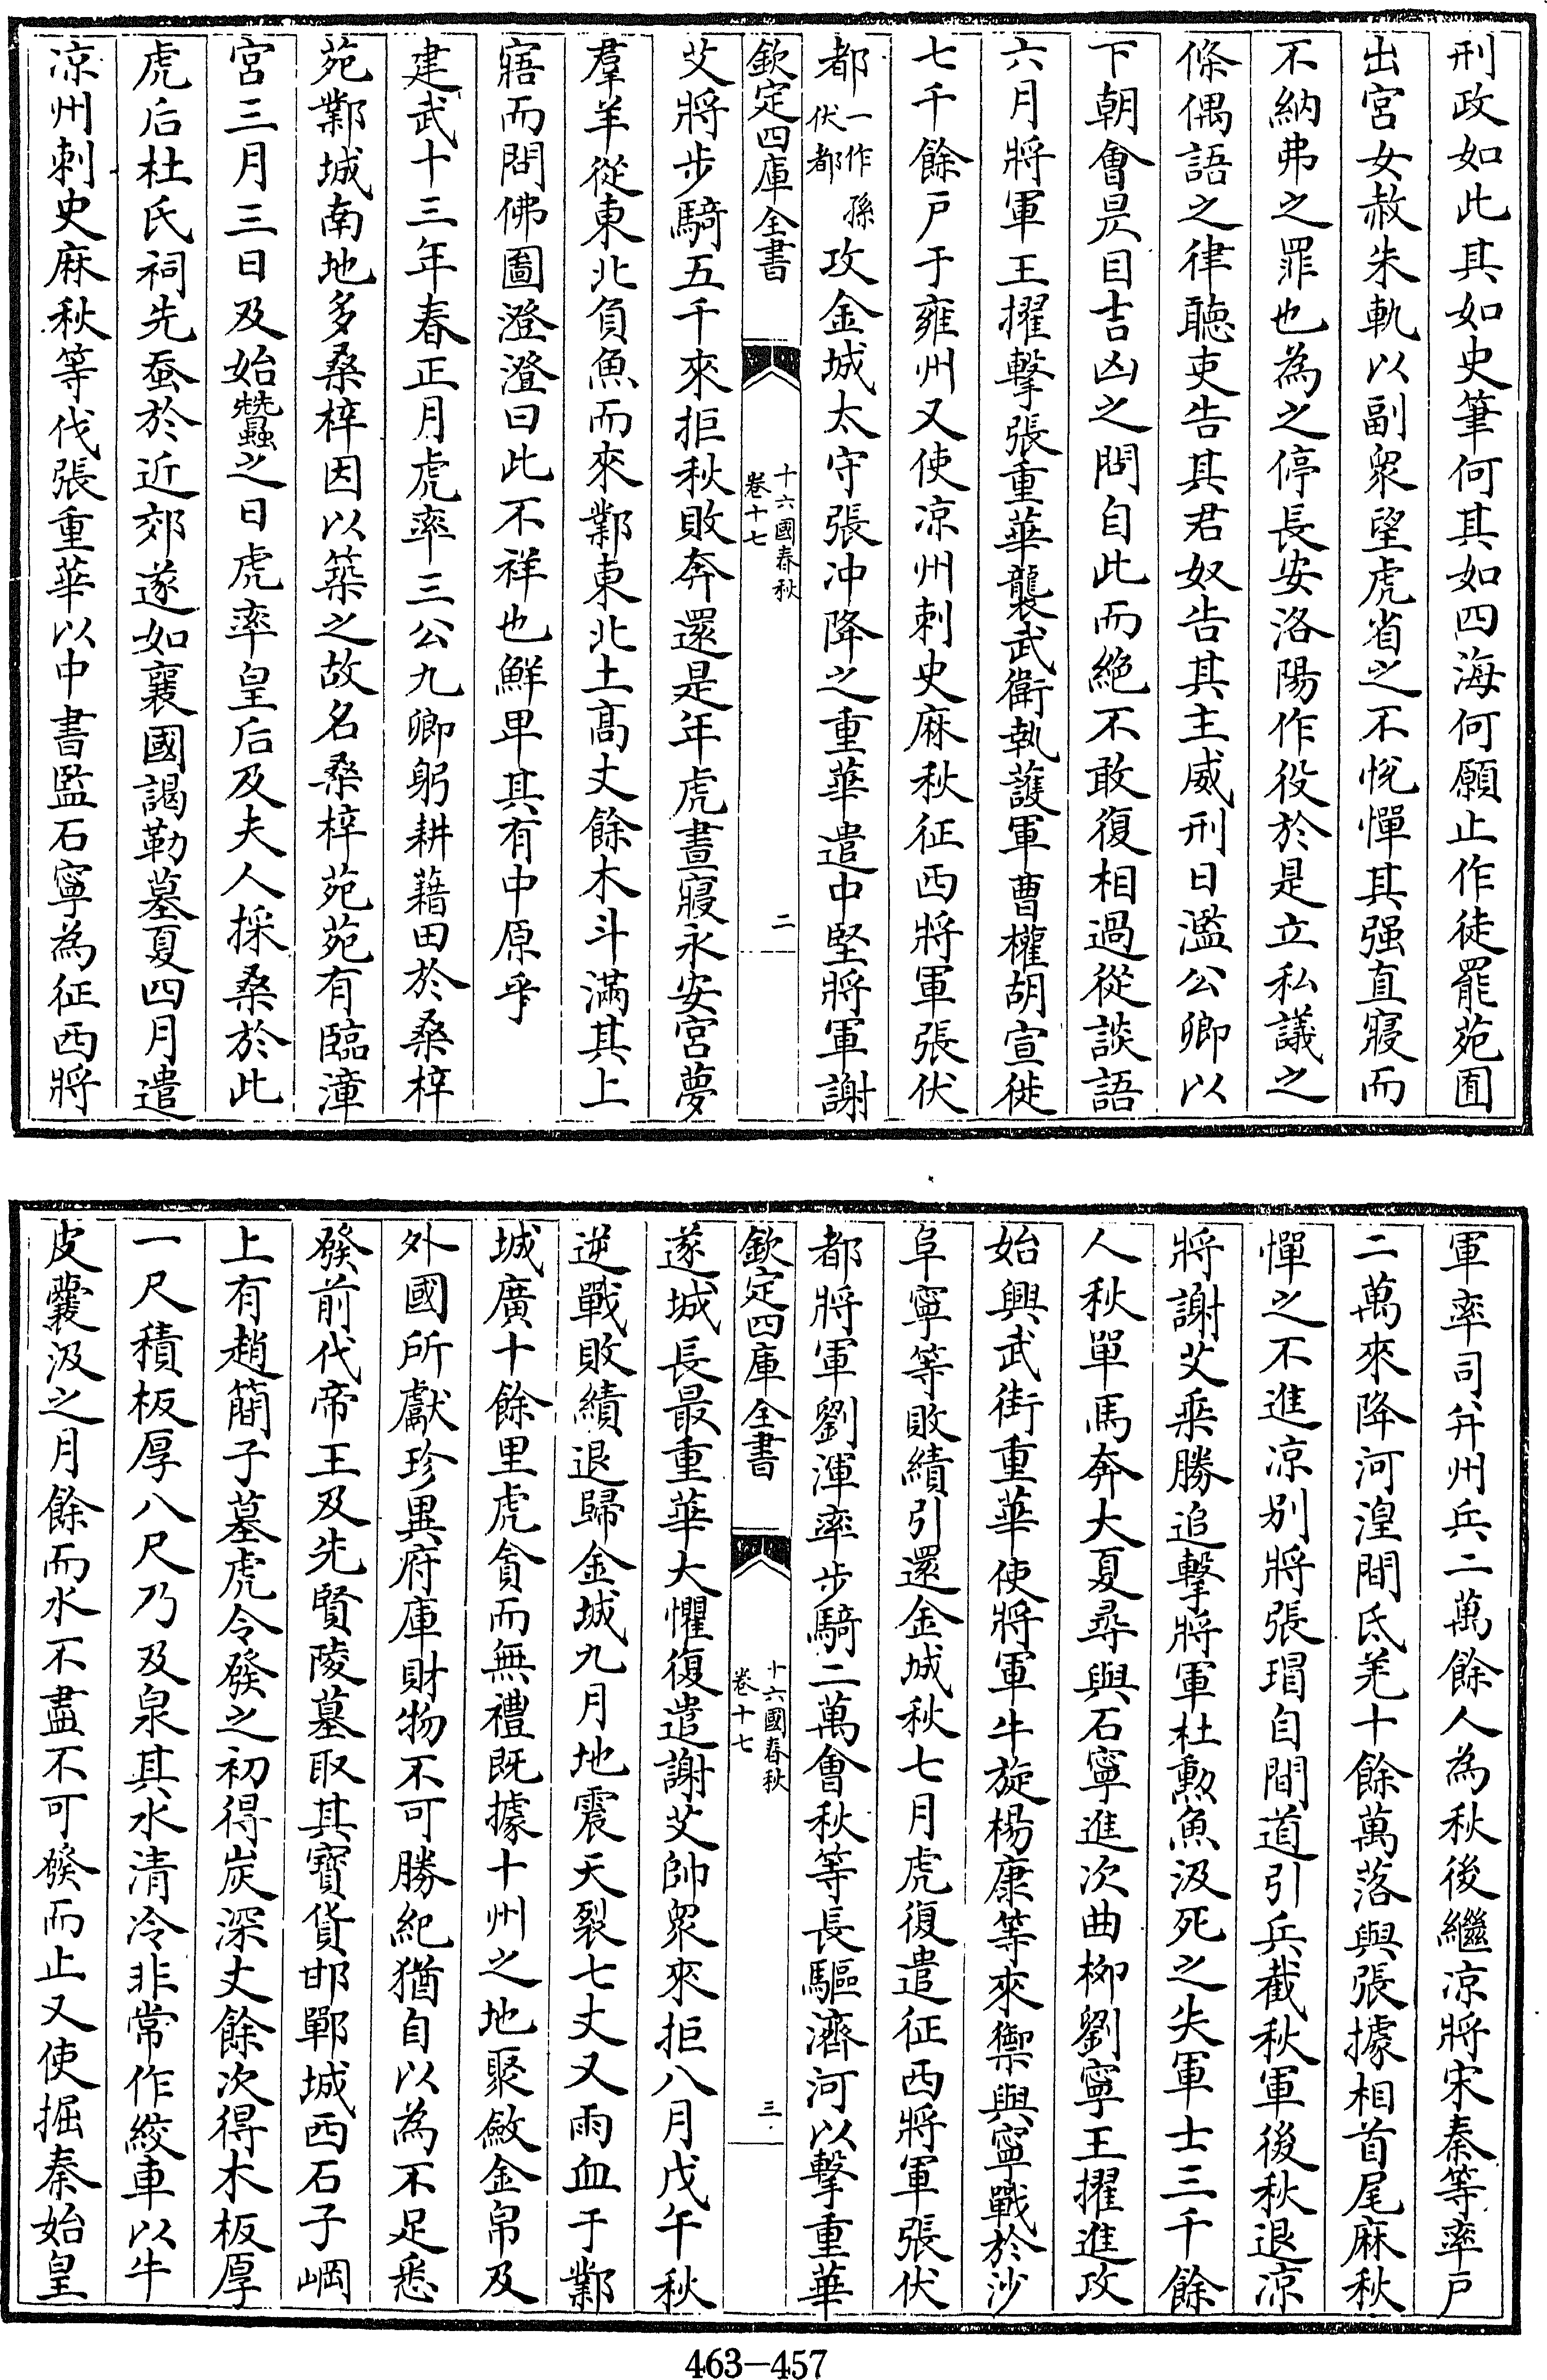 刑政如此其如史筆何其如四海何願止作徒罷苑囿
出宮女赦朱軌以副衆望虎省之不悅憚其强直寢而
不納弗之罪也為之停長安洛陽作役於是立私議之
條偶語之律聽吏告其君奴告其主威刑日濫公卿以
下朝會以目吉凶之問自此而絶不敢復相過從談語
六月將軍王擢擊張重華襲武衛執護軍曹權胡宣徙
七千餘戸于雍州又使凉州刺史麻秋征西將軍張伏
都一作孫伏都攻金城太守張冲降之重華遣中堅將軍謝
欽定四庫全書 十六國春秋 卷十七 二
艾將步騎五千來拒秋敗奔還是年虎晝寢永安宮夢
羣羊從東北負魚而來鄴東北土高丈餘木斗滿其上
寤而問佛圖澄澄曰此不祥也鮮卑其有中原乎
建武十三年春正月虎率三公九卿躬耕藉田於桑梓
苑鄴城南地多桑梓因以築之故名桑梓苑苑有臨漳
宮三月三日及始蠶之日虎率皇后及夫人採桑於此
虎后杜氏祠先蚕於近郊遂如襄國謁勒墓夏四月遣
凉州刺史麻秋等伐張重華以中書監石寧為征西將
軍率司并州兵二萬餘人為秋後繼凉將宋秦等率戸
二萬來降河湟間氐羌十餘萬落與張據相首尾麻秋
憚之不進凉别將張瑁自間道引兵截秋軍後秋退凉
將謝艾乗勝追擊將軍杜勲魚汲死之失軍士三千餘
人秋單馬奔大夏尋與石寧進次曲栁劉寧王擢進攻
始興武街重華使將軍牛旋楊康等來禦與寧戰於沙
阜寧等敗績引還金城秋七月虎復遣征西將軍張伏
都將軍劉渾率步騎二萬會秋等長驅濟河以擊重華
欽定四庫全書 十六國春秋 卷十七 三
遂城長最重華大懼復遣謝艾帥衆來拒八月戊午秋
逆戰敗績退歸金城九月地震天裂七丈又雨血于鄴
城廣十餘里虎貪而無禮既據十州之地聚斂金帛及
外國所獻珍異府庫財物不可勝紀猶自以為不足悉
發前代帝王及先賢陵墓取其寳貨邯鄲城西石子㟠
上有趙簡子墓虎令發之初得炭深丈餘次得木板厚
一尺積板厚八尺乃及泉其水清冷非常作絞車以牛
皮囊汲之月餘而水不盡不可發而止又使掘秦始皇
463—457